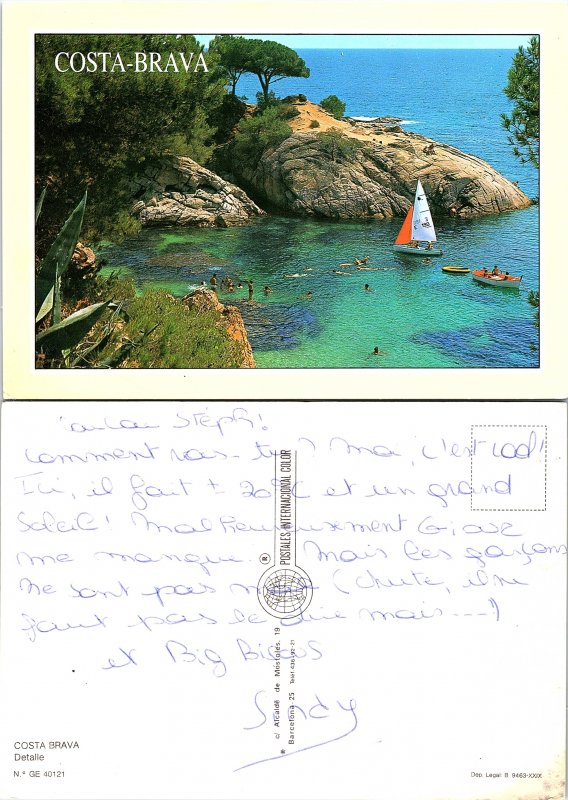 COSTA-BRAVA
Stéph!
comment vas-tu? Moi, c'est cool!
Ici, il fait ± 20°C et un grand
Soleil! Malheureusement
me manque. Mais les garçons
ne sont pas (chute, il ne
faut pas le dire mais ---!)
et Big Bisous
Sindy
POSTALES INTERNACIONAL COLOR
®
c/ Alcalde de Móstoles, 19
* Barcelona 25
COSTA BRAVA
Detalle
N.° GE 40121
Dep. Legal: B 9463-XXIX